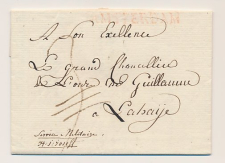 A Son Exellence
Le Grand Chancellier
de L'ordre de Guillaume
Lahaije
Service Militaire